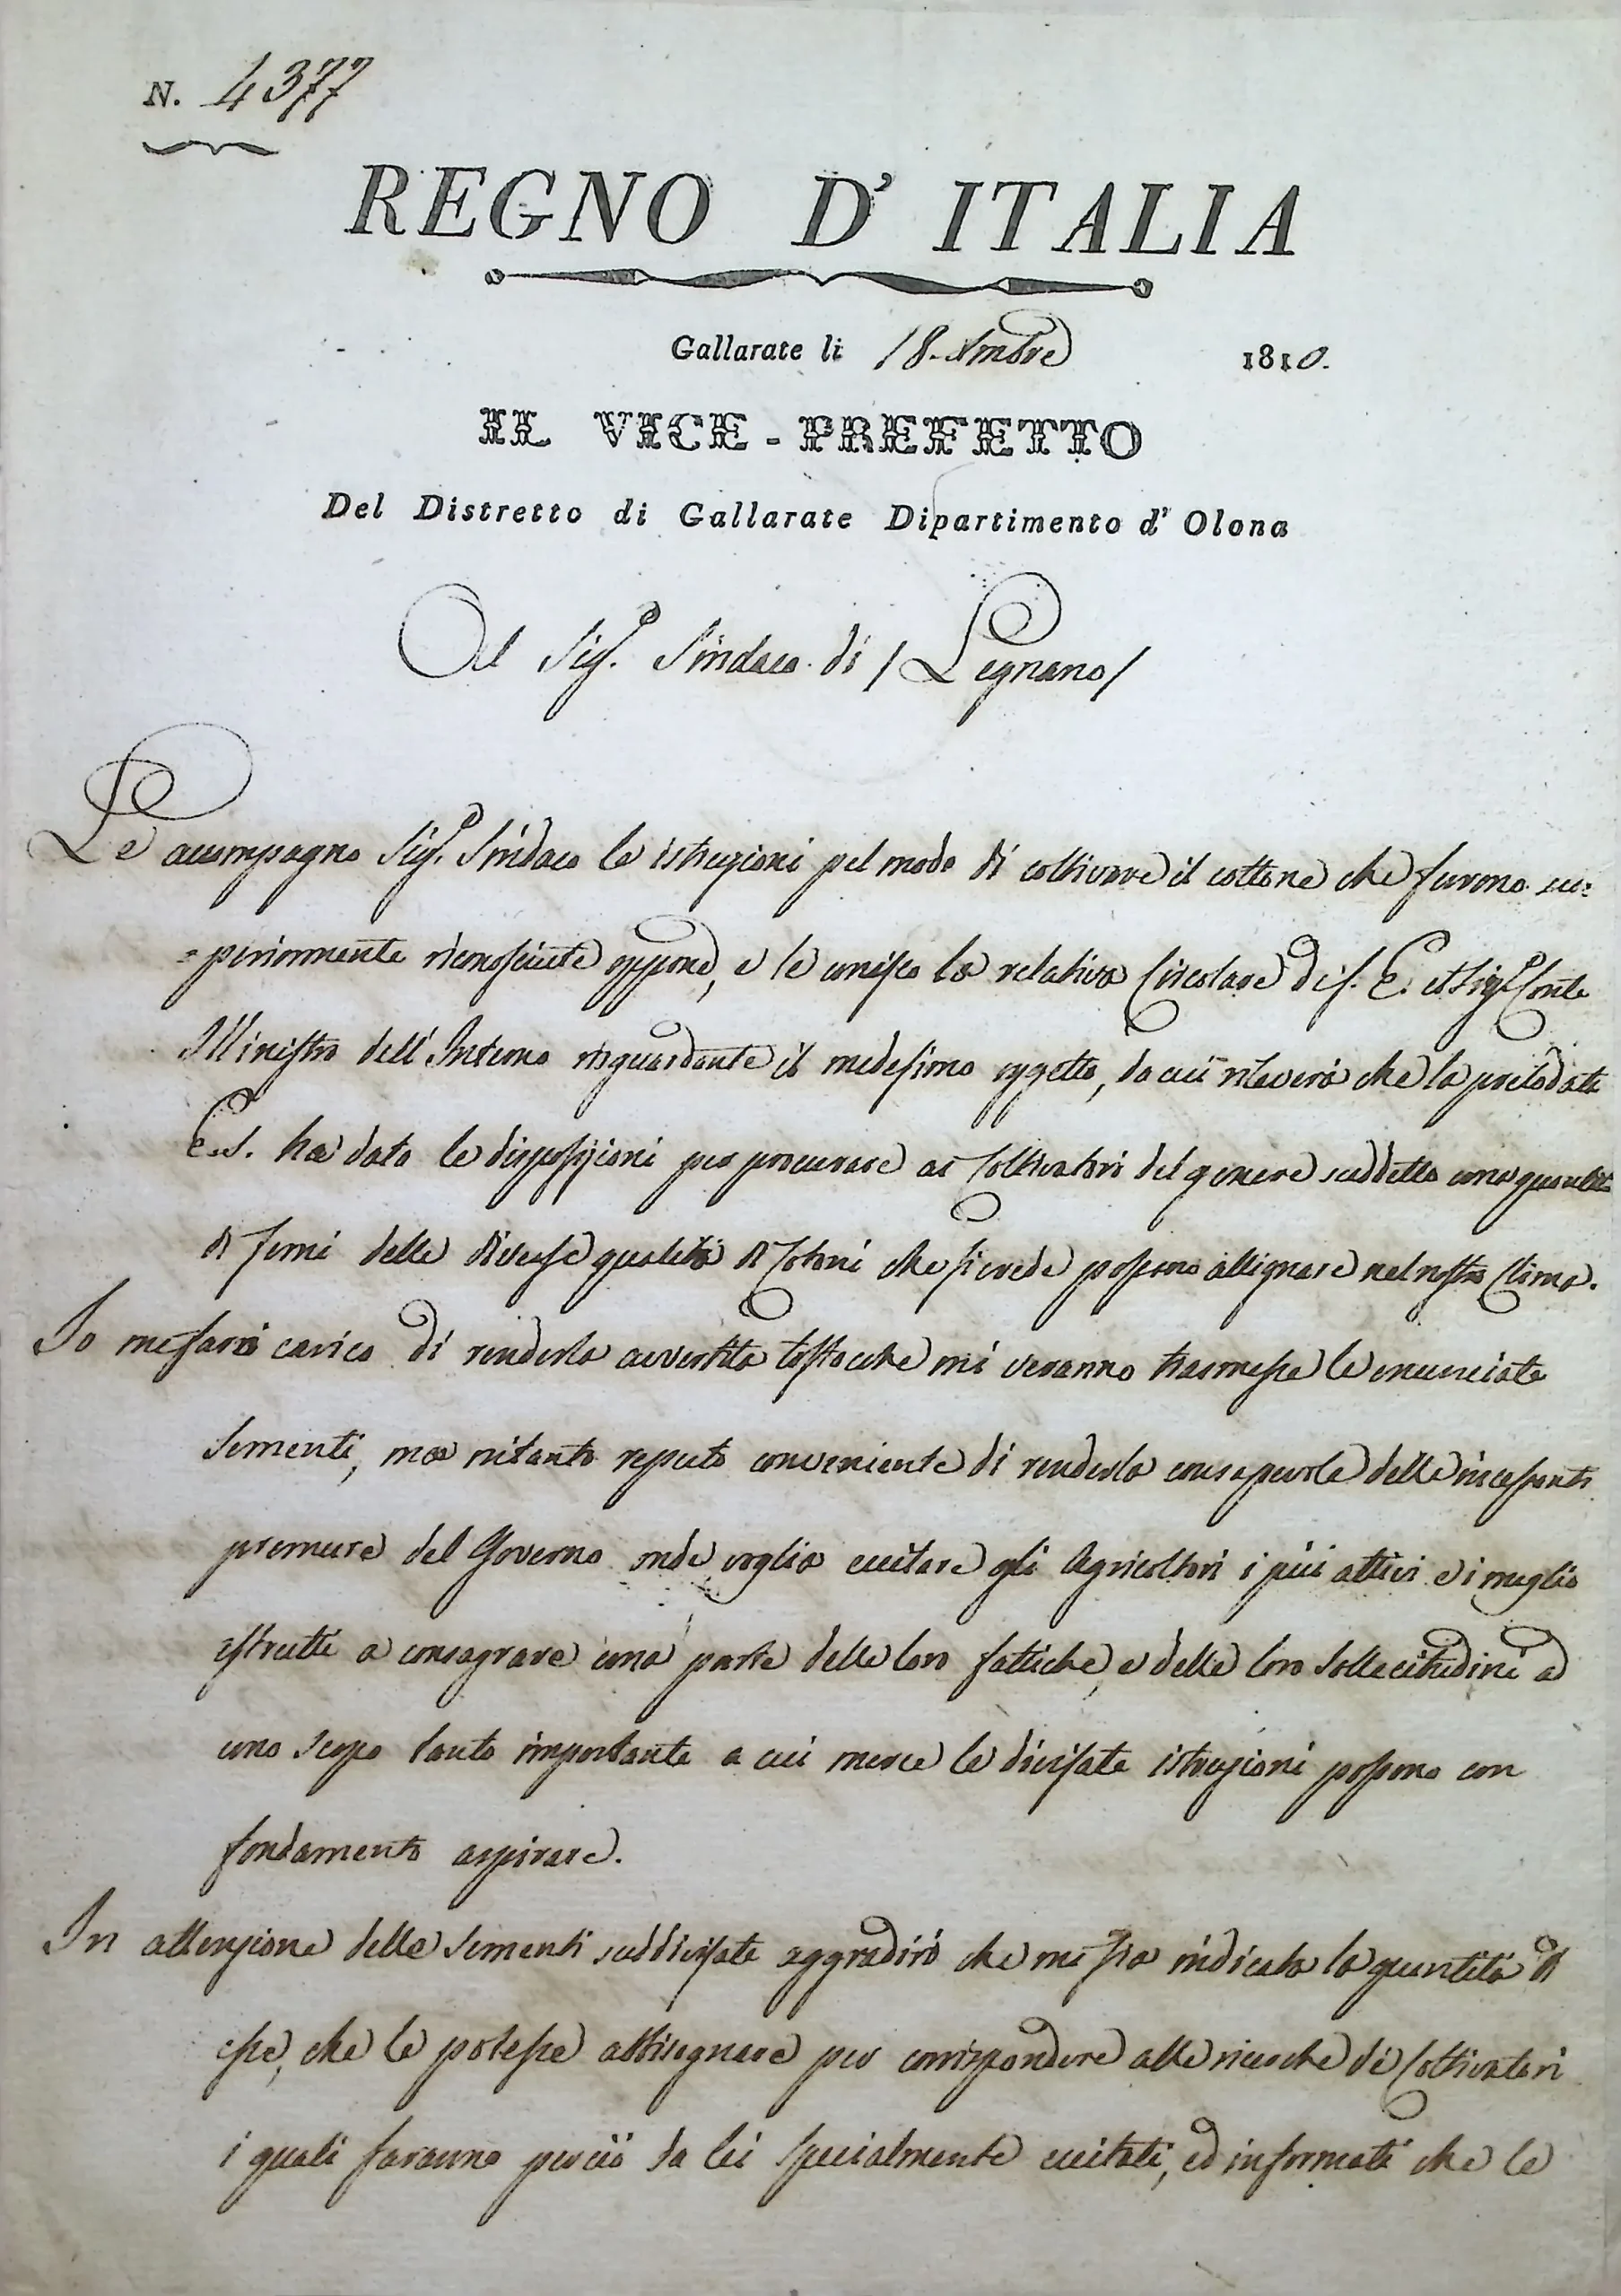 N. 4377
REGNO D' ITALIA
Gallarate li 18. Xmbre 1810.
IL VICE-PREFETTO
Del Distretto di Gallarate Dipartimento d' Olona
Al Sig.r Sindaco di / Legnano /
Le accompagno Sig.r Sindaco le istruzioni pel modo di coltivare il cottone che furono su:
=periormente riconosciute opportune, e le unisco la relativa Circolare di S. E. il Sig.r Conte
Ministro dell'Interno risguardante il medesimo oggetto, da cui rileverà che la prelodata
E. S. ha dato le disposizioni per procurare ai Coltivatori del genere suddetto una quantità
di semi delle diverse qualità di Cotoni che si crede possano allignare nel nostro Clima.
Io me farò carico di renderla avvertita tostocche mi veranno trasmesse le enunciate
Sementi, ma intanto reputo conveniente di renderla consapevole delle incessanti
premure del Governo onde voglia eccitare gli Agricoltori i più attivi e i meglio
istrutti a consagrare una parte delle loro fattiche, e delle loro Sollecitudini ad
uno scopo tanto importante a cui merce le divisate istruzioni possono con
fondamento aspirare.
In attenzione delle Sementi suddivisate aggradirò che me sia indicata la quantità di
esse, che le potesse abbisognare per corrispondere alle ricerche de Coltivatori
i quali saranno perciò da lei specialmente eccitati, ed informati che le